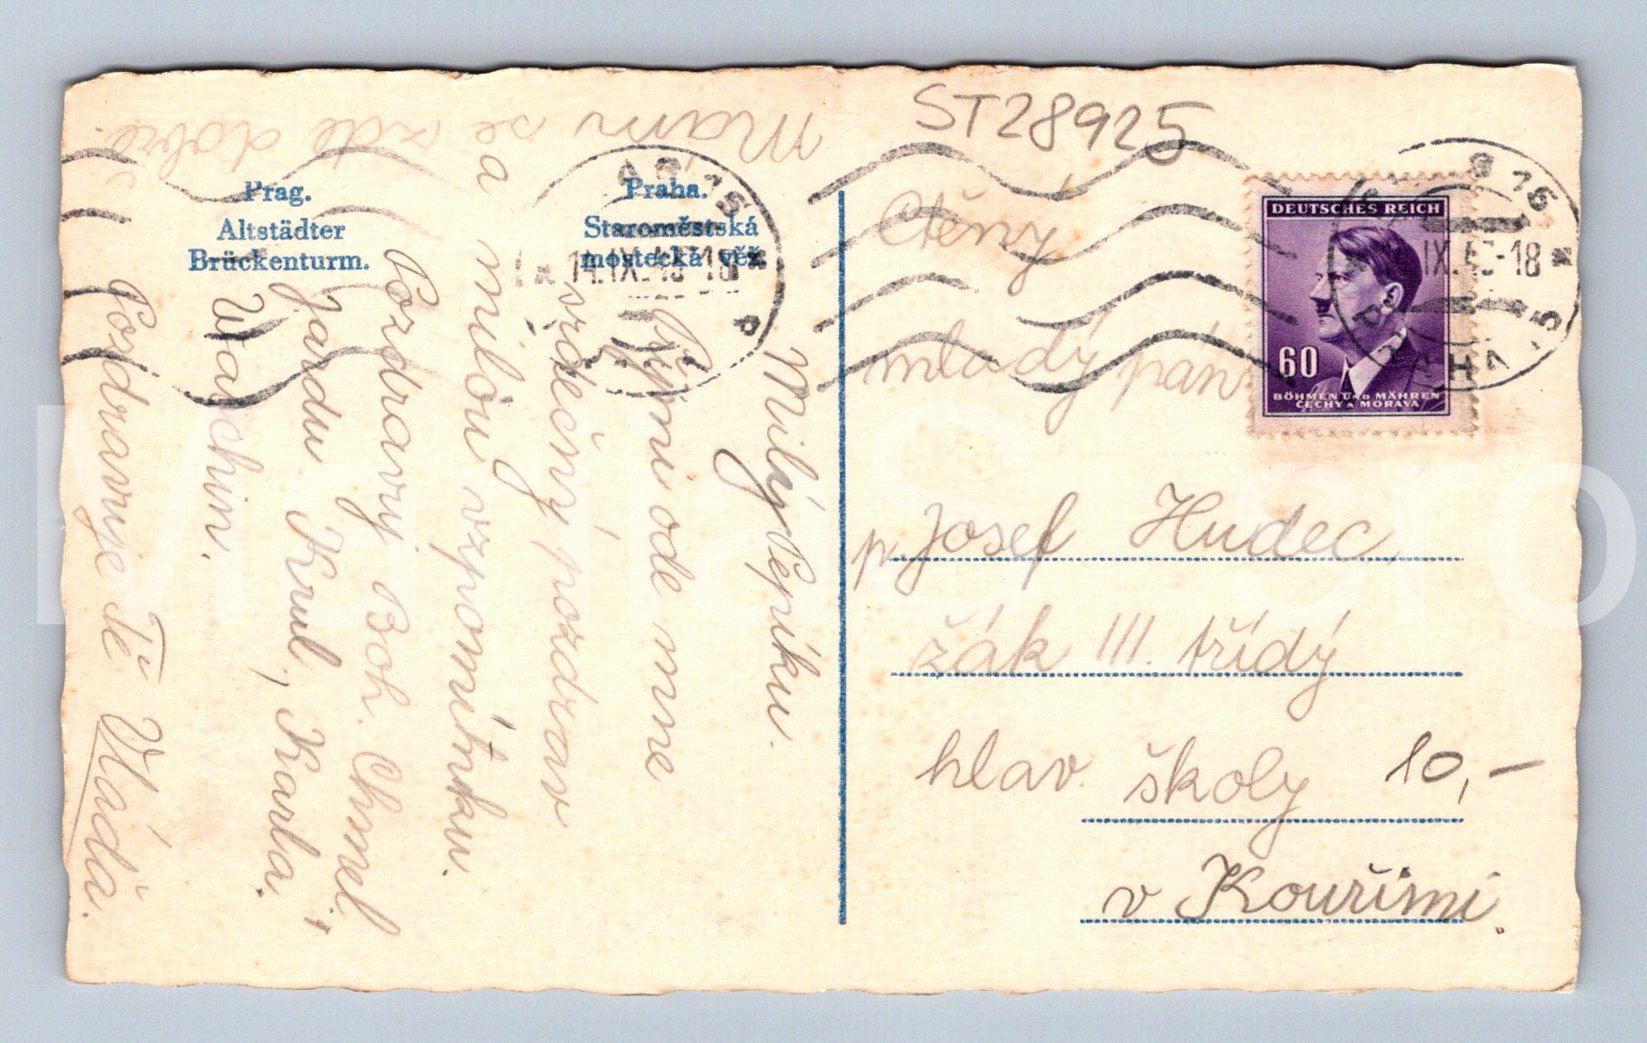 Mám se zde dobře.
ST28925
Prag.
Altstädter
Brückenturm.
Praha.
Staroměstská
mostecká věž.
Milý Pepíku.
Přijmi ode mne
srdečný pozdrav
a milou vzpomínku.
Pozdravuj Boh. Chmel,
Jardu Kruml, Karla.
Wachin.
Pozdravuje Tě Vláďa.
DEUTSCHES REICH
60
BÖHMEN UND MÄHREN
ČECHY A MORAVA
IX.43-18
14.IX.43-18
Ctěný
mladý pán
p. Josef Hudec,
žák III. třídy
hlav. školy
10,-
v Kouřimi.